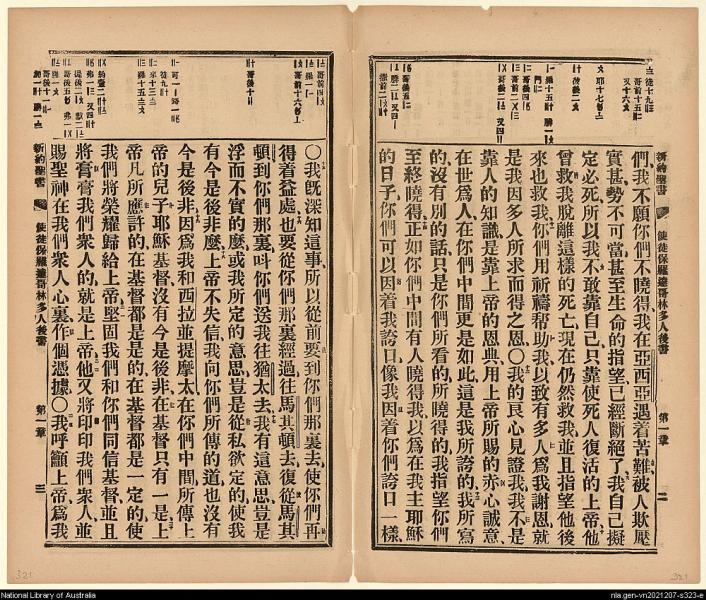 新約聖書
使徒保羅達哥林多人後書
第一章
二
們、我不願你們不曉得、我在亞西亞遇着苦難、被人欺壓
實甚、勢不可當、甚至生命的指望、已經斷絕了、我自己擬
定必死、所以我不敢靠自己、只靠使死人復活的上帝、他
曾救我脫離這樣的死亡、現在仍然救我、並且指望他後
來也救我、你們用祈禱幫助我、以致有多人爲我謝恩、就
是我因多人所求而得之恩、〇我的良心見證我、我不是
靠人的知識、是靠上帝的恩典、用上帝所賜的赤心誠意
在世爲人、在你們中間更是如此、這是我所誇的、我所寫
的、沒有別的話、只是你們所看的、所曉得的、我指望你們
至終曉得、正如你們中間有人曉得我、以爲在我主耶穌
的日子、你們可以因着我誇口、像我因着你們誇口一樣、
〇我旣深知這事、所以從前要到你們那裏去、使你們再
得着益處、也要從你們那裏經過、往馬其頓去、復從馬其
頓到你們那裏、呌你們送我往猶太去、我有這意思、豈是
浮而不實的麼、或我所定的意思、豈是從私欲定的、使我
有今是後非麼、上帝不失信、我向你們所傳的道、也沒有
今是後非、因爲我和西拉並提摩太、在你們中間所傳上
帝的兒子耶穌基督、沒有今是後非、在基督只有一是、上
帝凡所應許的、在基督都是是的、在基督都是一定的、使
我們將榮耀歸給上帝、堅固我們和你們同信基督、並且
將膏膏我們衆人的、就是上帝、他又將印印我們衆人、並
賜聖神在我們衆人心裏作個憑據、〇我呼籲上帝爲我
新約聖書
使徒保羅達哥林多人後書
第一章
三
321
321
National Library of Australia
nla.gen-vn2021207-s323-e